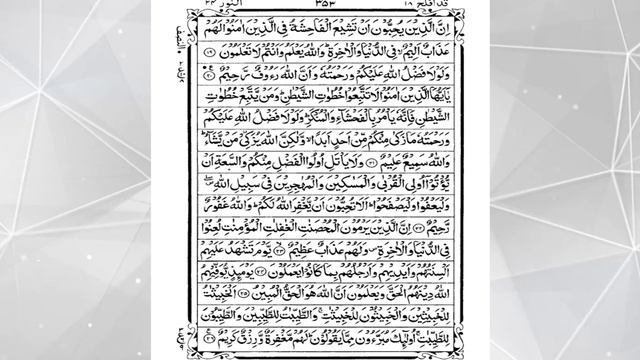 قد افلح ١٨ ٣٥٣ النور ٢٤
اِنَّ الَّذِيْنَ يُحِبُّوْنَ اَنْ تَشِيْعَ الْفَاحِشَةُ فِي الَّذِيْنَ اٰمَنُوْا لَهُمْ
عَذَابٌ اَلِيْمٌ فِي الدُّنْيَا وَالْاٰخِرَةِ وَاللّٰهُ يَعْلَمُ وَاَنْتُمْ لَا تَعْلَمُوْنَ ١٩
وَلَوْلَا فَضْلُ اللّٰهِ عَلَيْكُمْ وَرَحْمَتُهٗ وَاَنَّ اللّٰهَ رَءُوْفٌ رَّحِيْمٌ ٢٠
يٰٓاَيُّهَا الَّذِيْنَ اٰمَنُوْا لَا تَتَّبِعُوْا خُطُوٰتِ الشَّيْطٰنِ وَمَنْ يَّتَّبِعْ خُطُوٰتِ
الشَّيْطٰنِ فَاِنَّهٗ يَاْمُرُ بِالْفَحْشَآءِ وَالْمُنْكَرِ وَلَوْلَا فَضْلُ اللّٰهِ عَلَيْكُمْ
وَرَحْمَتُهٗ مَا زَكٰى مِنْكُمْ مِّنْ اَحَدٍ اَبَدًا وَّلٰكِنَّ اللّٰهَ يُزَكِّيْ مَنْ يَّشَآءُ
وَاللّٰهُ سَمِيْعٌ عَلِيْمٌ ٢١ وَلَا يَاْتَلِ اُولُوا الْفَضْلِ مِنْكُمْ وَالسَّعَةِ اَنْ
يُّؤْتُوْٓا اُولِي الْقُرْبٰى وَالْمَسٰكِيْنَ وَالْمُهٰجِرِيْنَ فِيْ سَبِيْلِ اللّٰهِ
وَلْيَعْفُوْا وَلْيَصْفَحُوْا اَلَا تُحِبُّوْنَ اَنْ يَّغْفِرَ اللّٰهُ لَكُمْ وَاللّٰهُ غَفُوْرٌ
رَّحِيْمٌ ٢٢ اِنَّ الَّذِيْنَ يَرْمُوْنَ الْمُحْصَنٰتِ الْغٰفِلٰتِ الْمُؤْمِنٰتِ لُعِنُوْا
فِي الدُّنْيَا وَالْاٰخِرَةِ وَلَهُمْ عَذَابٌ عَظِيْمٌ ٢٣ يَّوْمَ تَشْهَدُ عَلَيْهِمْ
اَلْسِنَتُهُمْ وَاَيْدِيْهِمْ وَاَرْجُلُهُمْ بِمَا كَانُوْا يَعْمَلُوْنَ ٢٤ يَوْمَئِذٍ يُّوَفِّيْهِمُ
اللّٰهُ دِيْنَهُمُ الْحَقَّ وَيَعْلَمُوْنَ اَنَّ اللّٰهَ هُوَ الْحَقُّ الْمُبِيْنُ ٢٥ اَلْخَبِيْثٰتُ
لِلْخَبِيْثِيْنَ وَالْخَبِيْثُوْنَ لِلْخَبِيْثٰتِ وَالطَّيِّبٰتُ لِلطَّيِّبِيْنَ وَالطَّيِّبُوْنَ
لِلطَّيِّبٰتِ اُولٰٓئِكَ مُبَرَّءُوْنَ مِمَّا يَقُوْلُوْنَ لَهُمْ مَّغْفِرَةٌ وَّرِزْقٌ كَرِيْمٌ ٢٦
النصف